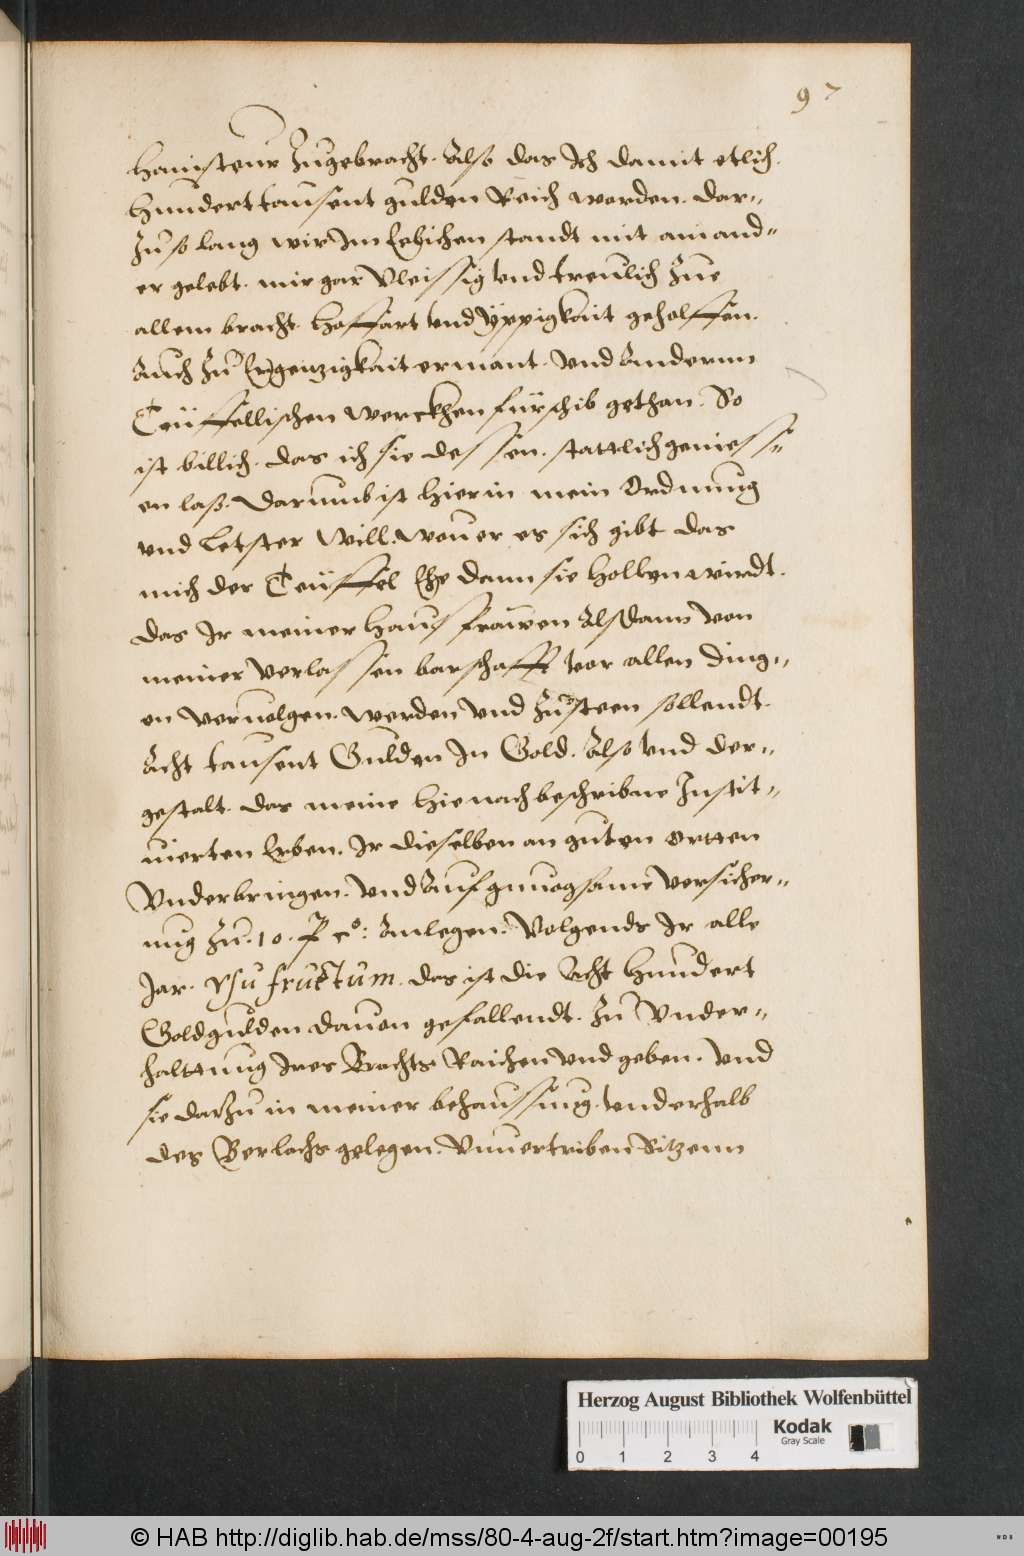 97
Haussteur Zugebracht. Also das Ich damit etlich
hundert tausent gulden Reich worden. Dar=
Zu so lang wir Im Eelichen standt mit ainand=
er gelebt. mir gar Vleissig vnd treulich Zue
allem bracht. Hoffart vnd Üppigkait geholffen.
Auch Zu Ergeitzigkait ermant. Vnd Anderenn
Teüffellischen werckhen fürschib gethan. So
ist billich. das ich sie dessen. stattlich geniess=
en laß. Darumb ist hierin mein Ordnung
vnd Letster Will. Wouer es sich gibt das
mich der Teüffel Ehe dann sie hollen wirdt.
das Ir meiner Hausfrawen Alsdann von
meiner verlassen barschafft vor allen ding=
en veruolgen. werden vnd Zusteen sollendt.
Acht tausent Gulden In Gold. Also vnd der=
gestalt. das meine hienach beschribne Instit=
uierten Erben. Ir dieselben an guten ortten
Vnderbringen. Vnd Auf gnuogsame versicher=
ung Zu .10. P co: Anlegen. Volgends Ir alle
Jar. Vsu fructum. das ist die Acht hundert
Goldgulden dauon gefallendt. Zu Vnder=
halttung Ires Brachts Raichen vnd geben. Vnd
sie darzu in meiner behaussung. vnderhalb
des Berlachs gelegen. Vnuertriben Sitzenn
Herzog August Bibliothek Wolfenbüttel
Kodak
Gray Scale
0 1 2 3 4
© HAB http://diglib.hab.de/mss/80-4-aug-2f/start.htm?image=00195